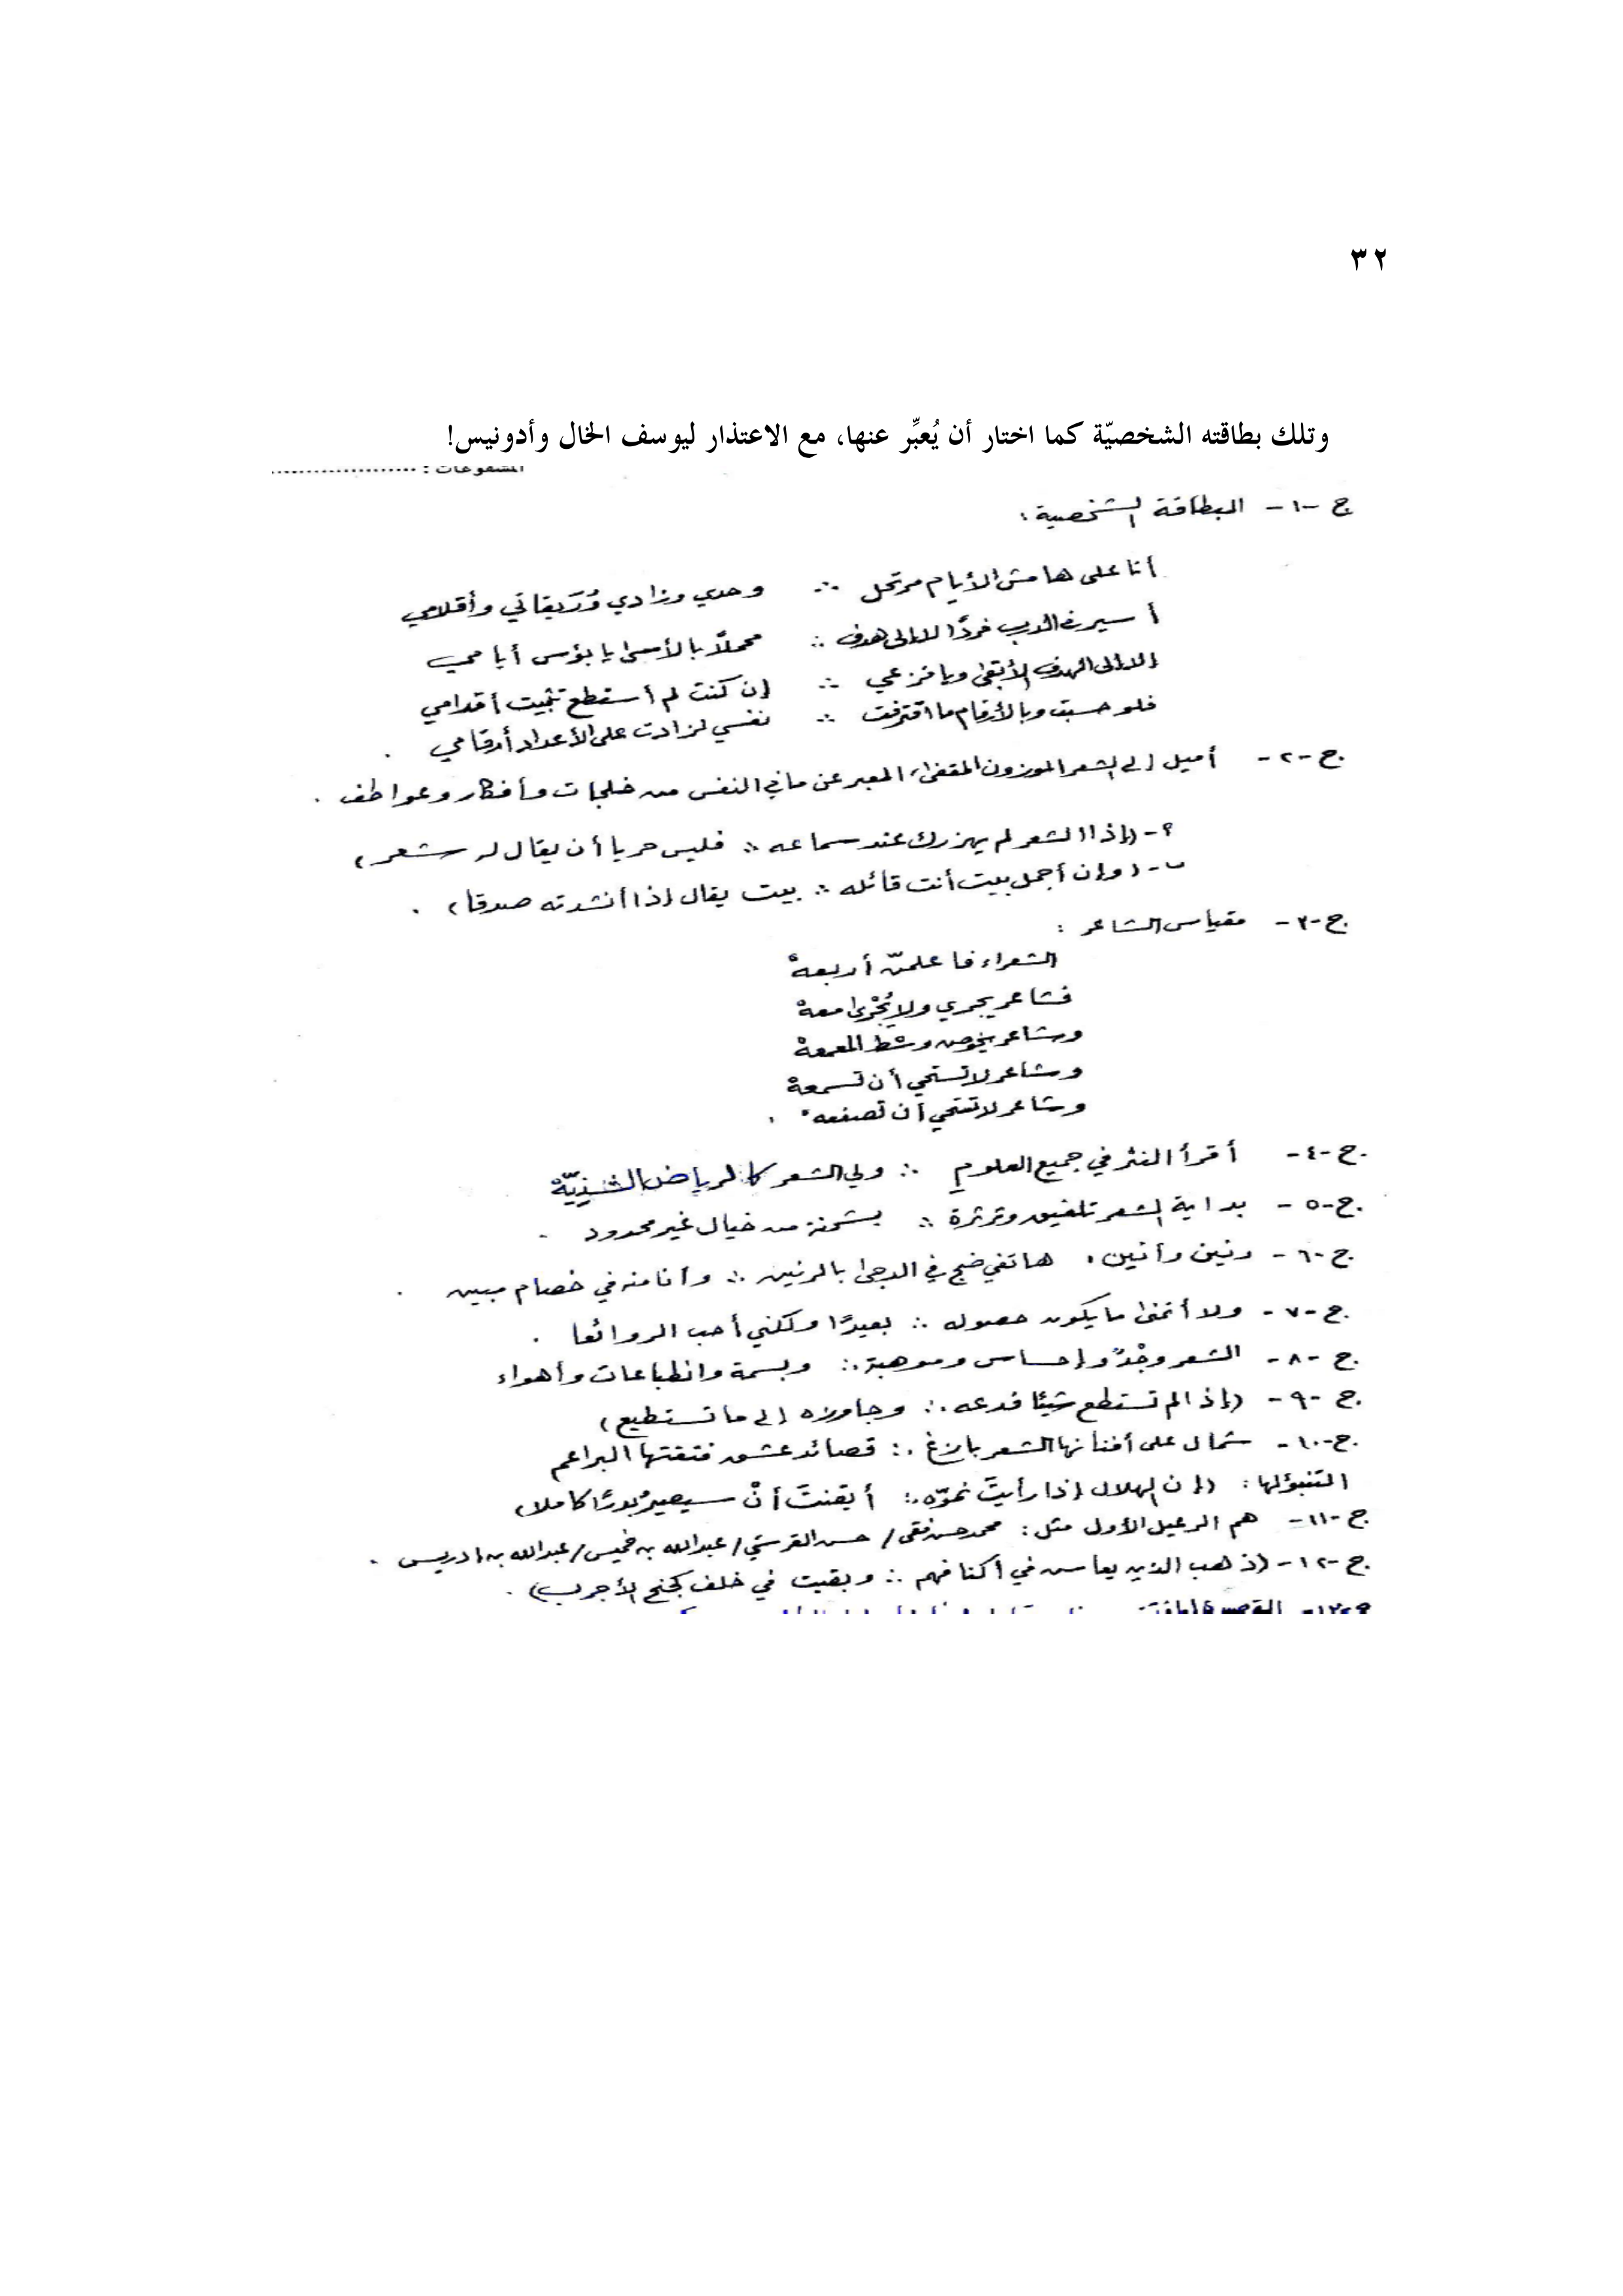 ٣٢
وتلك بطاقته الشخصيّة كما اختار أن يُعبِّر عنها، مع الاعتذار ليوسف الخال وأدونيس!
المشفوعات : ....................
ج -١- البطاقة الشخصية :
أنا على هامش الأيام مرتحل ∴ وحدي وزادي وُرَيقاتي وأقلامي
أسير في الدرب فردًا لا إلى هدف ∴ محملاً بالأسى يا بؤس أيامي
إلا إلى الهدف الأبقى ويا فزعي ∴ إن كنت لم أستطع تثبيت أقدامي
فلو حسبت وبالأرقام ما اقترفت ∴ نفسي لزادت على الأعداد أرقامي .
ج -٢- أميل إلى الشعر الموزون المقفى، المعبر عن ما في النفس من خلجات وأفكار وعواطف .
٩- (إذا الشعر لم يهززك عند سماعه ∴ فليس حريا أن يقال له شعر)
ب- (وإن أجمل بيت أنت قائله ∴ بيت يقال إذا أنشدته صدقا) .
ج -٣- مقياس الشاعر :
الشعراء فاعلمنّ أربعهْ
فشاعر يجري ولا يُجْرى معهْ
وشاعر يخوض وسْط المعمعهْ
وشاعر لا تستحي أن تسمعهْ
وشاعر لا تستحي أن تصفعه .
ج -٤- أقرأ النثر في جميع العلومِ ∴ ولي الشعر كالرياض الشذِيّهْ
ج -٥- بداية الشعر تلفيق وثرثرة ∴ بشحنة من خيال غير محدود .
ج -٦- رنين وأنين . هاتفي ضج في الدجى بالرنين ∴ وأنا منه في خصام مبين .
ج -٧- ولا أتمنى ما يكون حصوله ∴ بعيدًا ولكني أحب الروائعا .
ج -٨- الشعر وجْدٌ وإحساس وموهبة ∴ وبسمة وانطباعات وأهواء
ج -٩- (إذا لم تستطع شيئا فدعه ∴ وجاوزه إلى ما تستطيع)
ج -١٠- شمال على أفنانها الشعر بازغ ∴ قصائد عشق فتقتها البراعم
التنبؤ لها : (إن الهلال إذا رأيتَ نموّه ∴ أيقنتَ أنْ سيصيرُ بدرًا كاملا)
ج -١١- هم الرعيل الأول مثل : محمد حسن فقي / حسن القرشي / عبدالله بن خميس / عبدالله بن ادريس .
ج -١٢- (ذهب الذين يعاش في أكنافهم ∴ وبقيت في خلف كجلد الأجرب) .